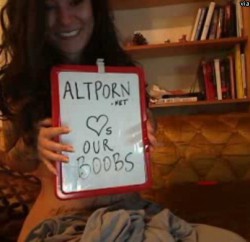 via
ALTPORN
.NET
♡s
OUR
BOOBS